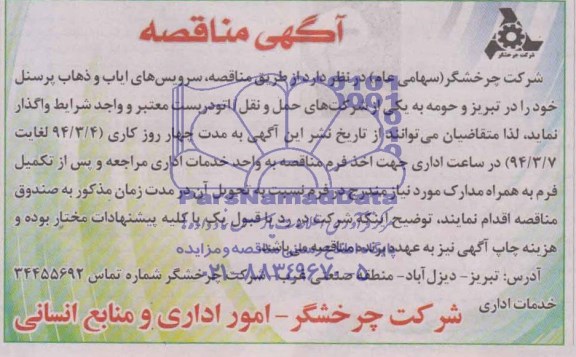 آگهی مناقصه
شرکت چرخشگر
شرکت چرخشگر(سهامی عام) در نظر دارد از طریق مناقصه، سرویس‌های ایاب و ذهاب پرسنل
خود را در تبریز و حومه به یکی از شرکت‌های حمل و نقل با تودریست معتبر و واجد شرایط واگذار
نماید، لذا متقاضیان می‌توانند از تاریخ نشر این آگهی به مدت چهار روز کاری (۹۴/۳/۴ لغایت
۹۴/۳/۷) در ساعت اداری جهت اخذ فرم مناقصه به واحد خدمات اداری مراجعه و پس از تکمیل
فرم به همراه مدارک مورد نیاز مندرج در فرم نسبت به تحویل آن در مدت زمان مذکور به صندوق
مناقصه اقدام نمایند، توضیح اینکه شرکت در رد یا قبول یک یا کلیه پیشنهادات مختار بوده و
هزینه چاپ آگهی نیز به عهده برنده مناقصه می‌باشد.
آدرس: تبریز- دیزل آباد- منطقه صنعتی غرب- شرکت چرخشگر شماره تماس ۳۴۴۵۵۶۹۲
خدمات اداری
شرکت چرخشگر - امور اداری و منابع انسانی
ParsNamadData
پایگاه اطلاع رسانی مناقصه و مزایده
۰۲۱-۸۸۳۴۹۶۷۰-۵